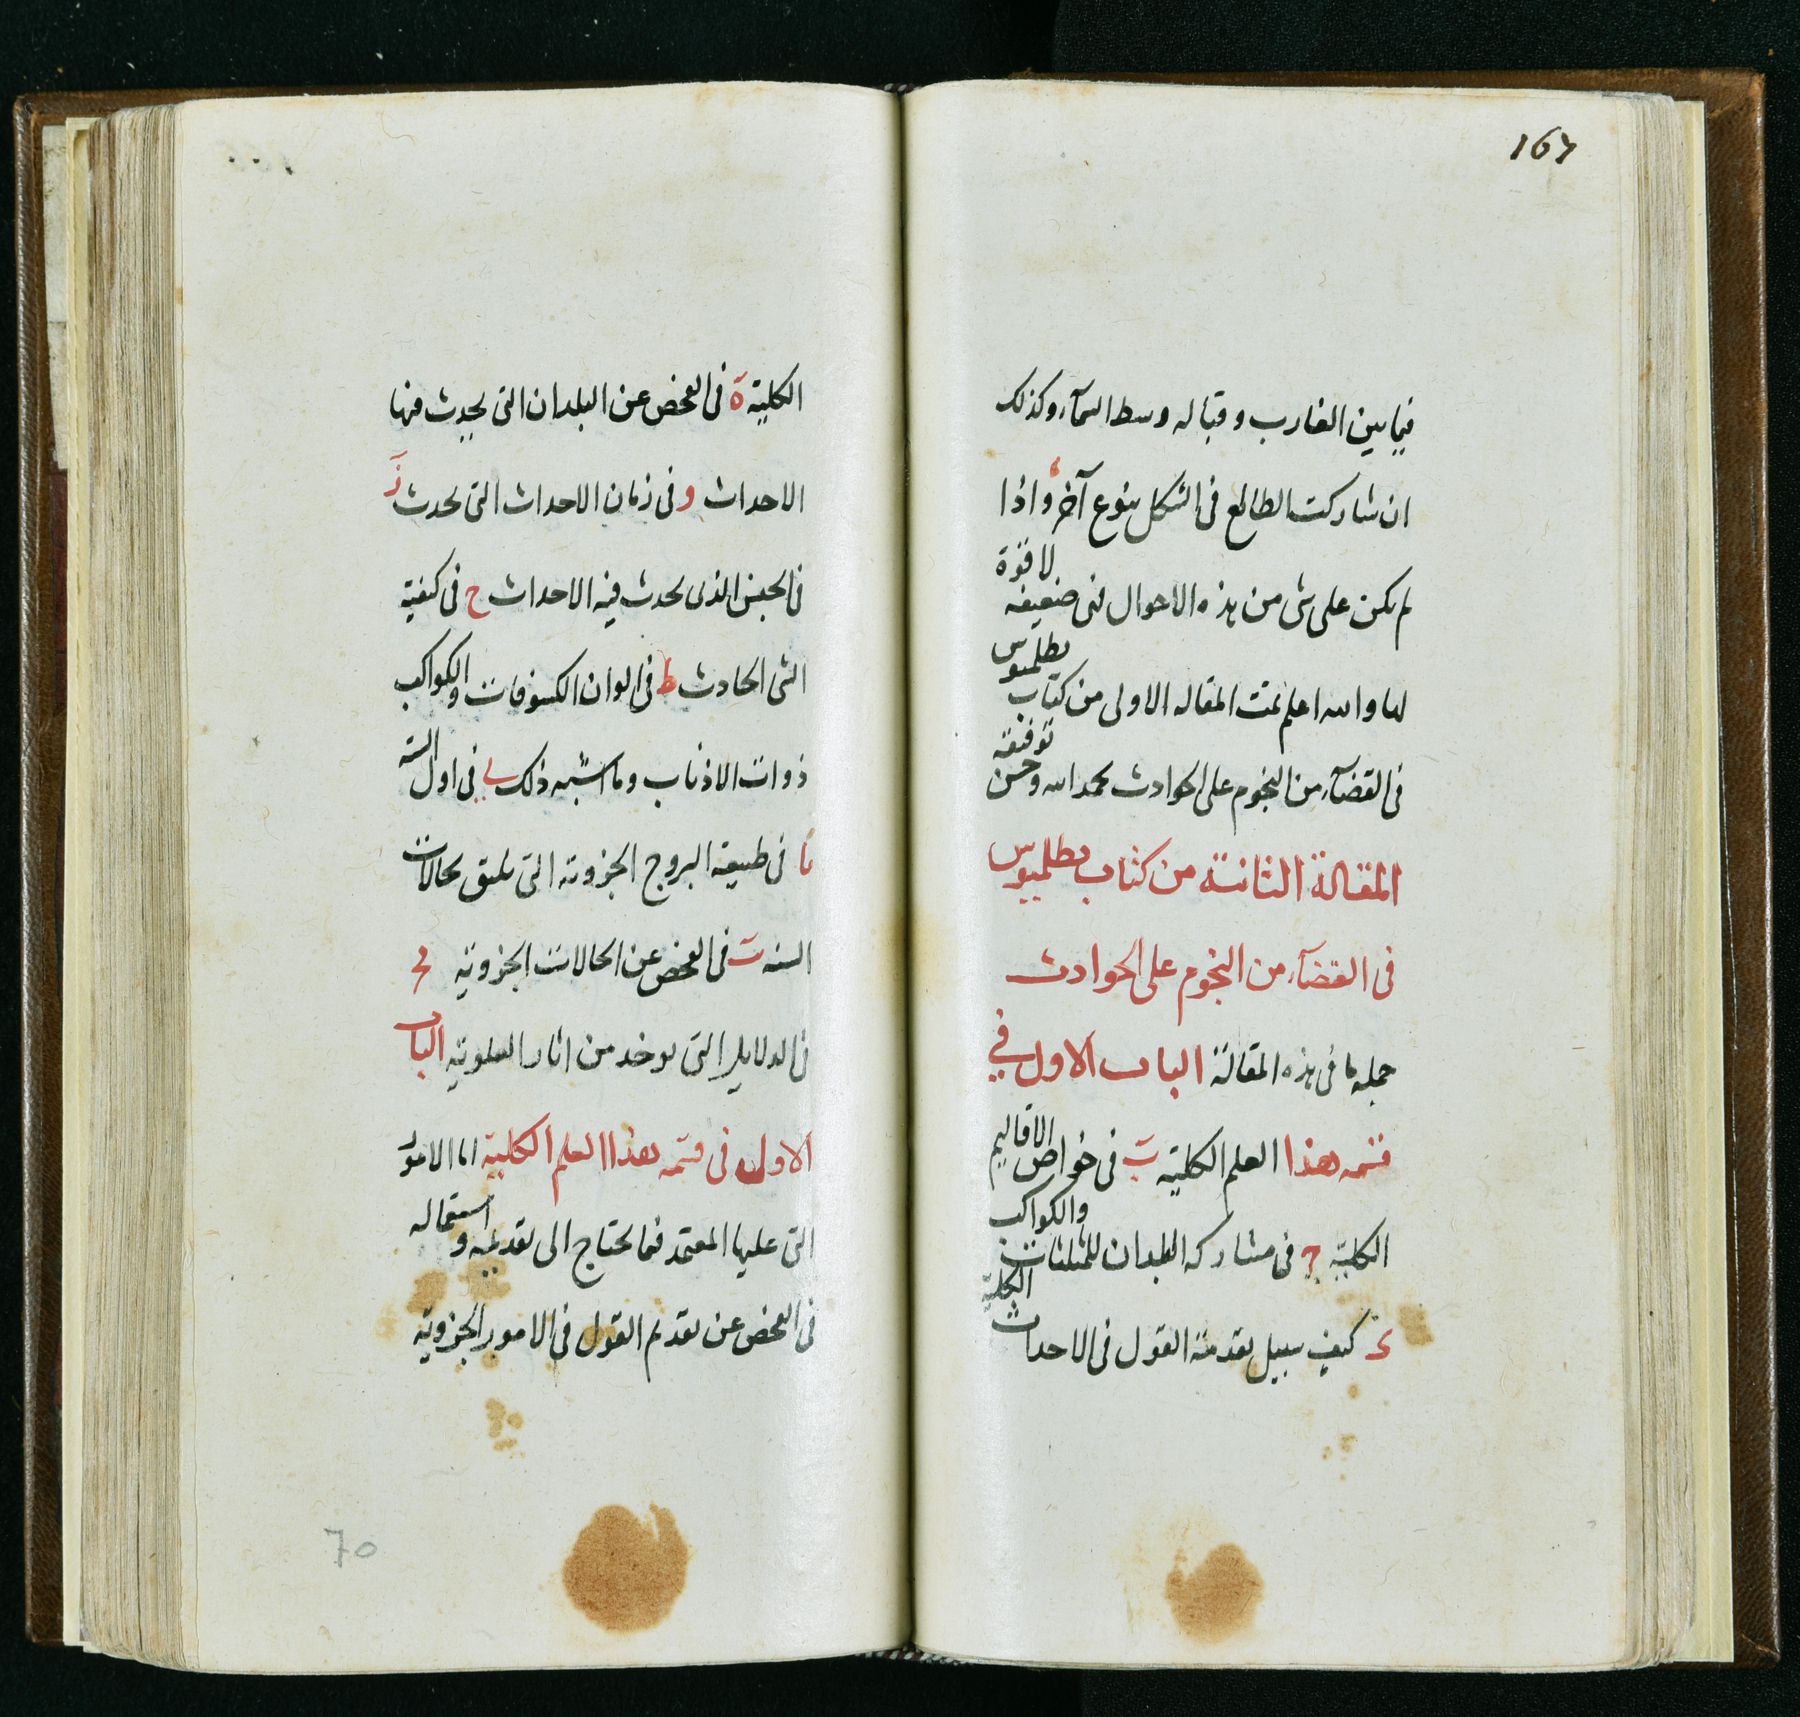 167
فيما بين الغارب وقباله وسط السمآء وكذلك
ان شاركت الطالع فى الشكل بنوع آخر واذا
لم يكن على شى من هذه الاحوال فهى ضعيفه لا قوة
لها والله اعلم تمت المقاله الاولى من كتاب بطلميوس
فى القضآء من النجوم على الحوادث بحمد الله وحسن توفيقه
المقالة الثانية من كتاب بطلميوس
فى القضآء من النجوم على الحوادث
جملة ما فى هذه المقالة الباب الاول فى
قسمه هذا العلم الكلية ب فى خواص الاقاليم
الكلية ج فى مشاركه البلدان للمثلثات والكواكب
د كيف سبيل تقدمة القول فى الاحداث الكلية
الكلية ه فى الفحص عن البلدان التى يحدث فيها
الاحداث و فى زمان الاحداث التى تحدث ز
فى الجنس الذى تحدث فيه الاحداث ح فى كيفية
الشى الحادث ط فى الوان الكسوفات والكواكب
ذوات الاذناب وما اشبه ذلك ى فى اول السنة
يا فى طبيعة البروج الجزوية التى تليق بحالات
السنه يب فى الفحص عن الحالات الجزوية يج
فى الدلايل التى توخد من اثار العلوية الباب
الاول فى قسمه هذا العلم الكلية اما الامور
التى عليها المعتمد فيما يحتاج الى تقديمه واستعماله
فى الفحص عن تقدم القول فى الامور الجزوية
70